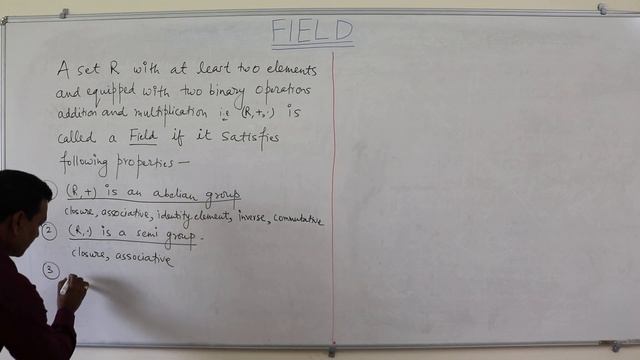 FIELD
A set R with at least two elements
and equipped with two binary operations
addition and multiplication i.e (R,+,·) is
called a Field if it satisfies
following properties —
(R,+) is an abelian group
closure, associative, identity element, inverse, commutative
2 (R,·) is a semi group.
closure, associative
3